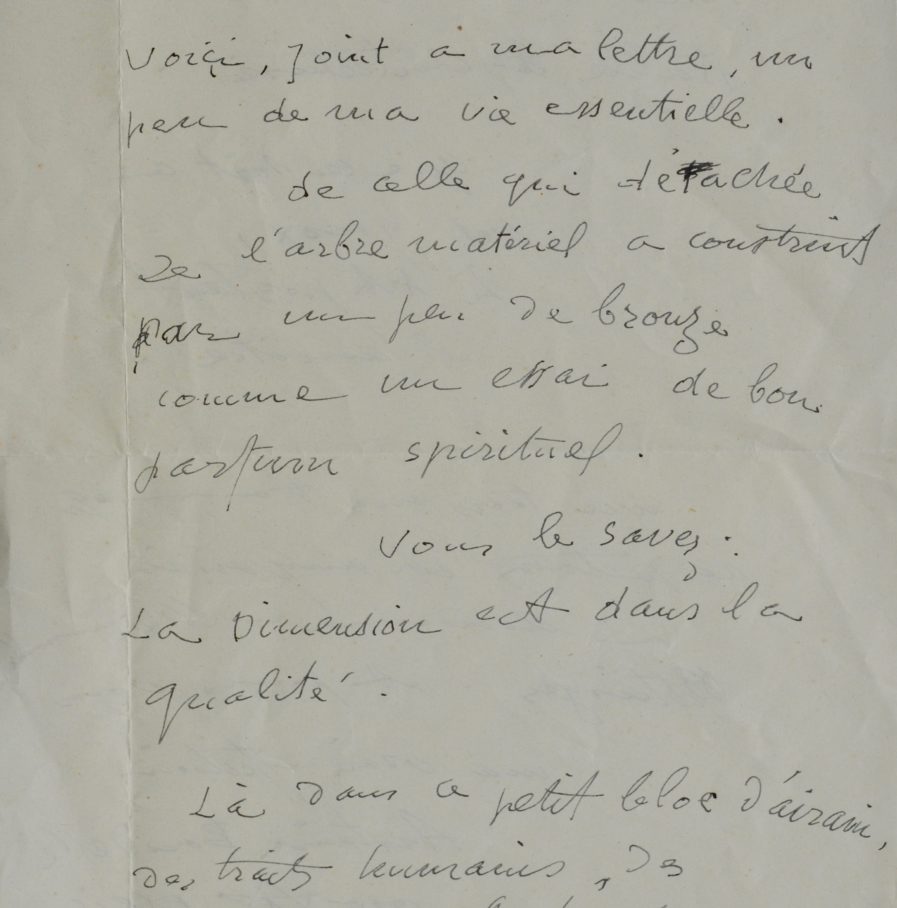 Voici, joint a ma lettre, un
peu de ma vie essentielle.
de celle qui détachée
de l'arbre matériel a construit
par un peu de bronze
comme un essai de bon
parfum spirituel.
Vous le savez.
La Dimension est dans la
qualité.
Là dans ce petit bloc d'airain,
des traits humains, des